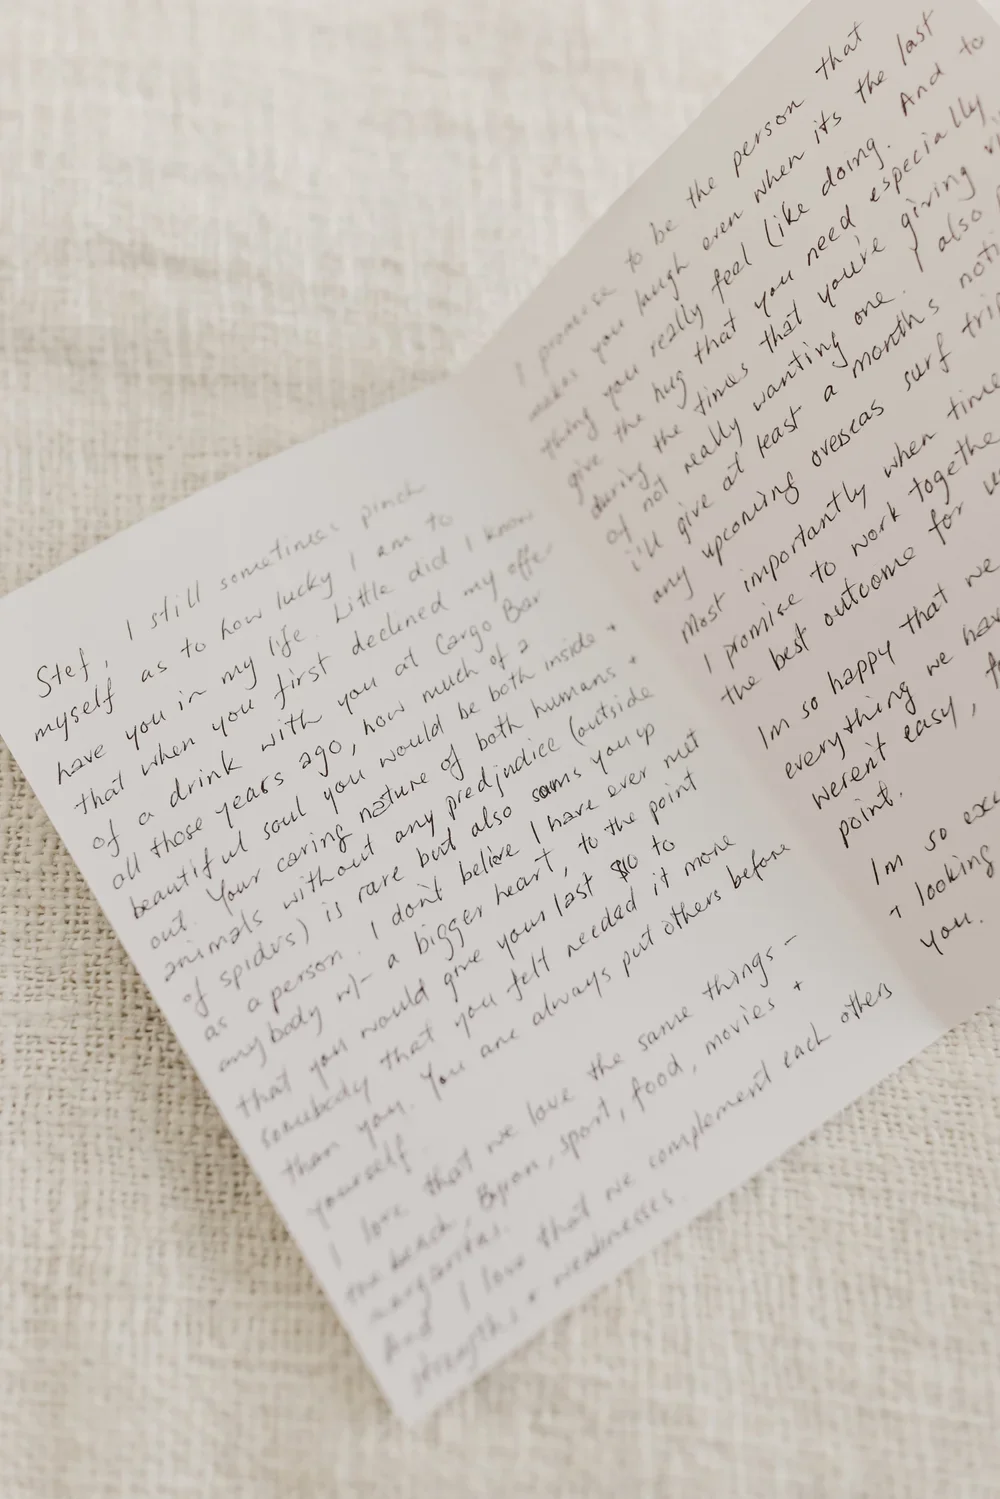 Stef, I still sometimes pinch
myself as to how lucky I am to
have you in my life. Little did I know
that when you first declined my offer
of a drink with you at Cargo Bar
all those years ago, how much of a
beautiful soul you would be both inside +
out. Your caring nature of both humans +
animals without any predjudice (outside
of spiders) is rare but also sums you up
as a person. I don't believe I have ever met
anybody w/- a bigger heart, to the point
that you would give your last $10 to
somebody that you felt needed it more
than you. You are always put others before
yourself.
I love that we love the same things -
the beach, Byron, sport, food, movies +
margaritas.
And I love that we complement each others
strengths + weaknesses.
I promise to be the person that
makes you laugh even when its the last
thing you really feel like doing. And to
give the hug that you need especially
during the times that you're giving
of not really wanting one. I also
i'll give at least a months
any upcoming overseas surf
Most importantly when
I promise to work
the best outcome for
Im so happy that we
everything we
weren't easy,
point.
Im so
+ looking
you.